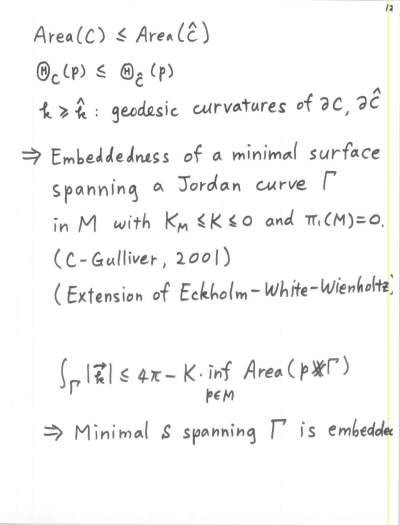 12
Area(C) ≤ Area(Ĉ)
Θ_C(p) ≤ Θ_Ĉ(p)
k ≥ k̂ : geodesic curvatures of ∂C, ∂Ĉ
⇒ Embeddedness of a minimal surface
spanning a Jordan curve Γ
in M with K_M ≤ K ≤ 0 and π₁(M)=0.
(C-Gulliver, 2001)
(Extension of Eckholm-White-Wienholtz)
∫_Γ |k⃗| ≤ 4π - K · inf_{p∈M} Area(p⨳Γ)
⇒ Minimal S spanning Γ is embedded